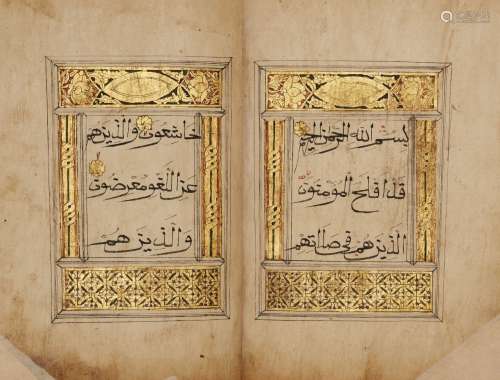 بسم الله الرحمن الرحيم
قد افلح المومنون
الذين هم في صلاتهم
خاشعون والذين هم
عن اللغو معرضون
والذين هم